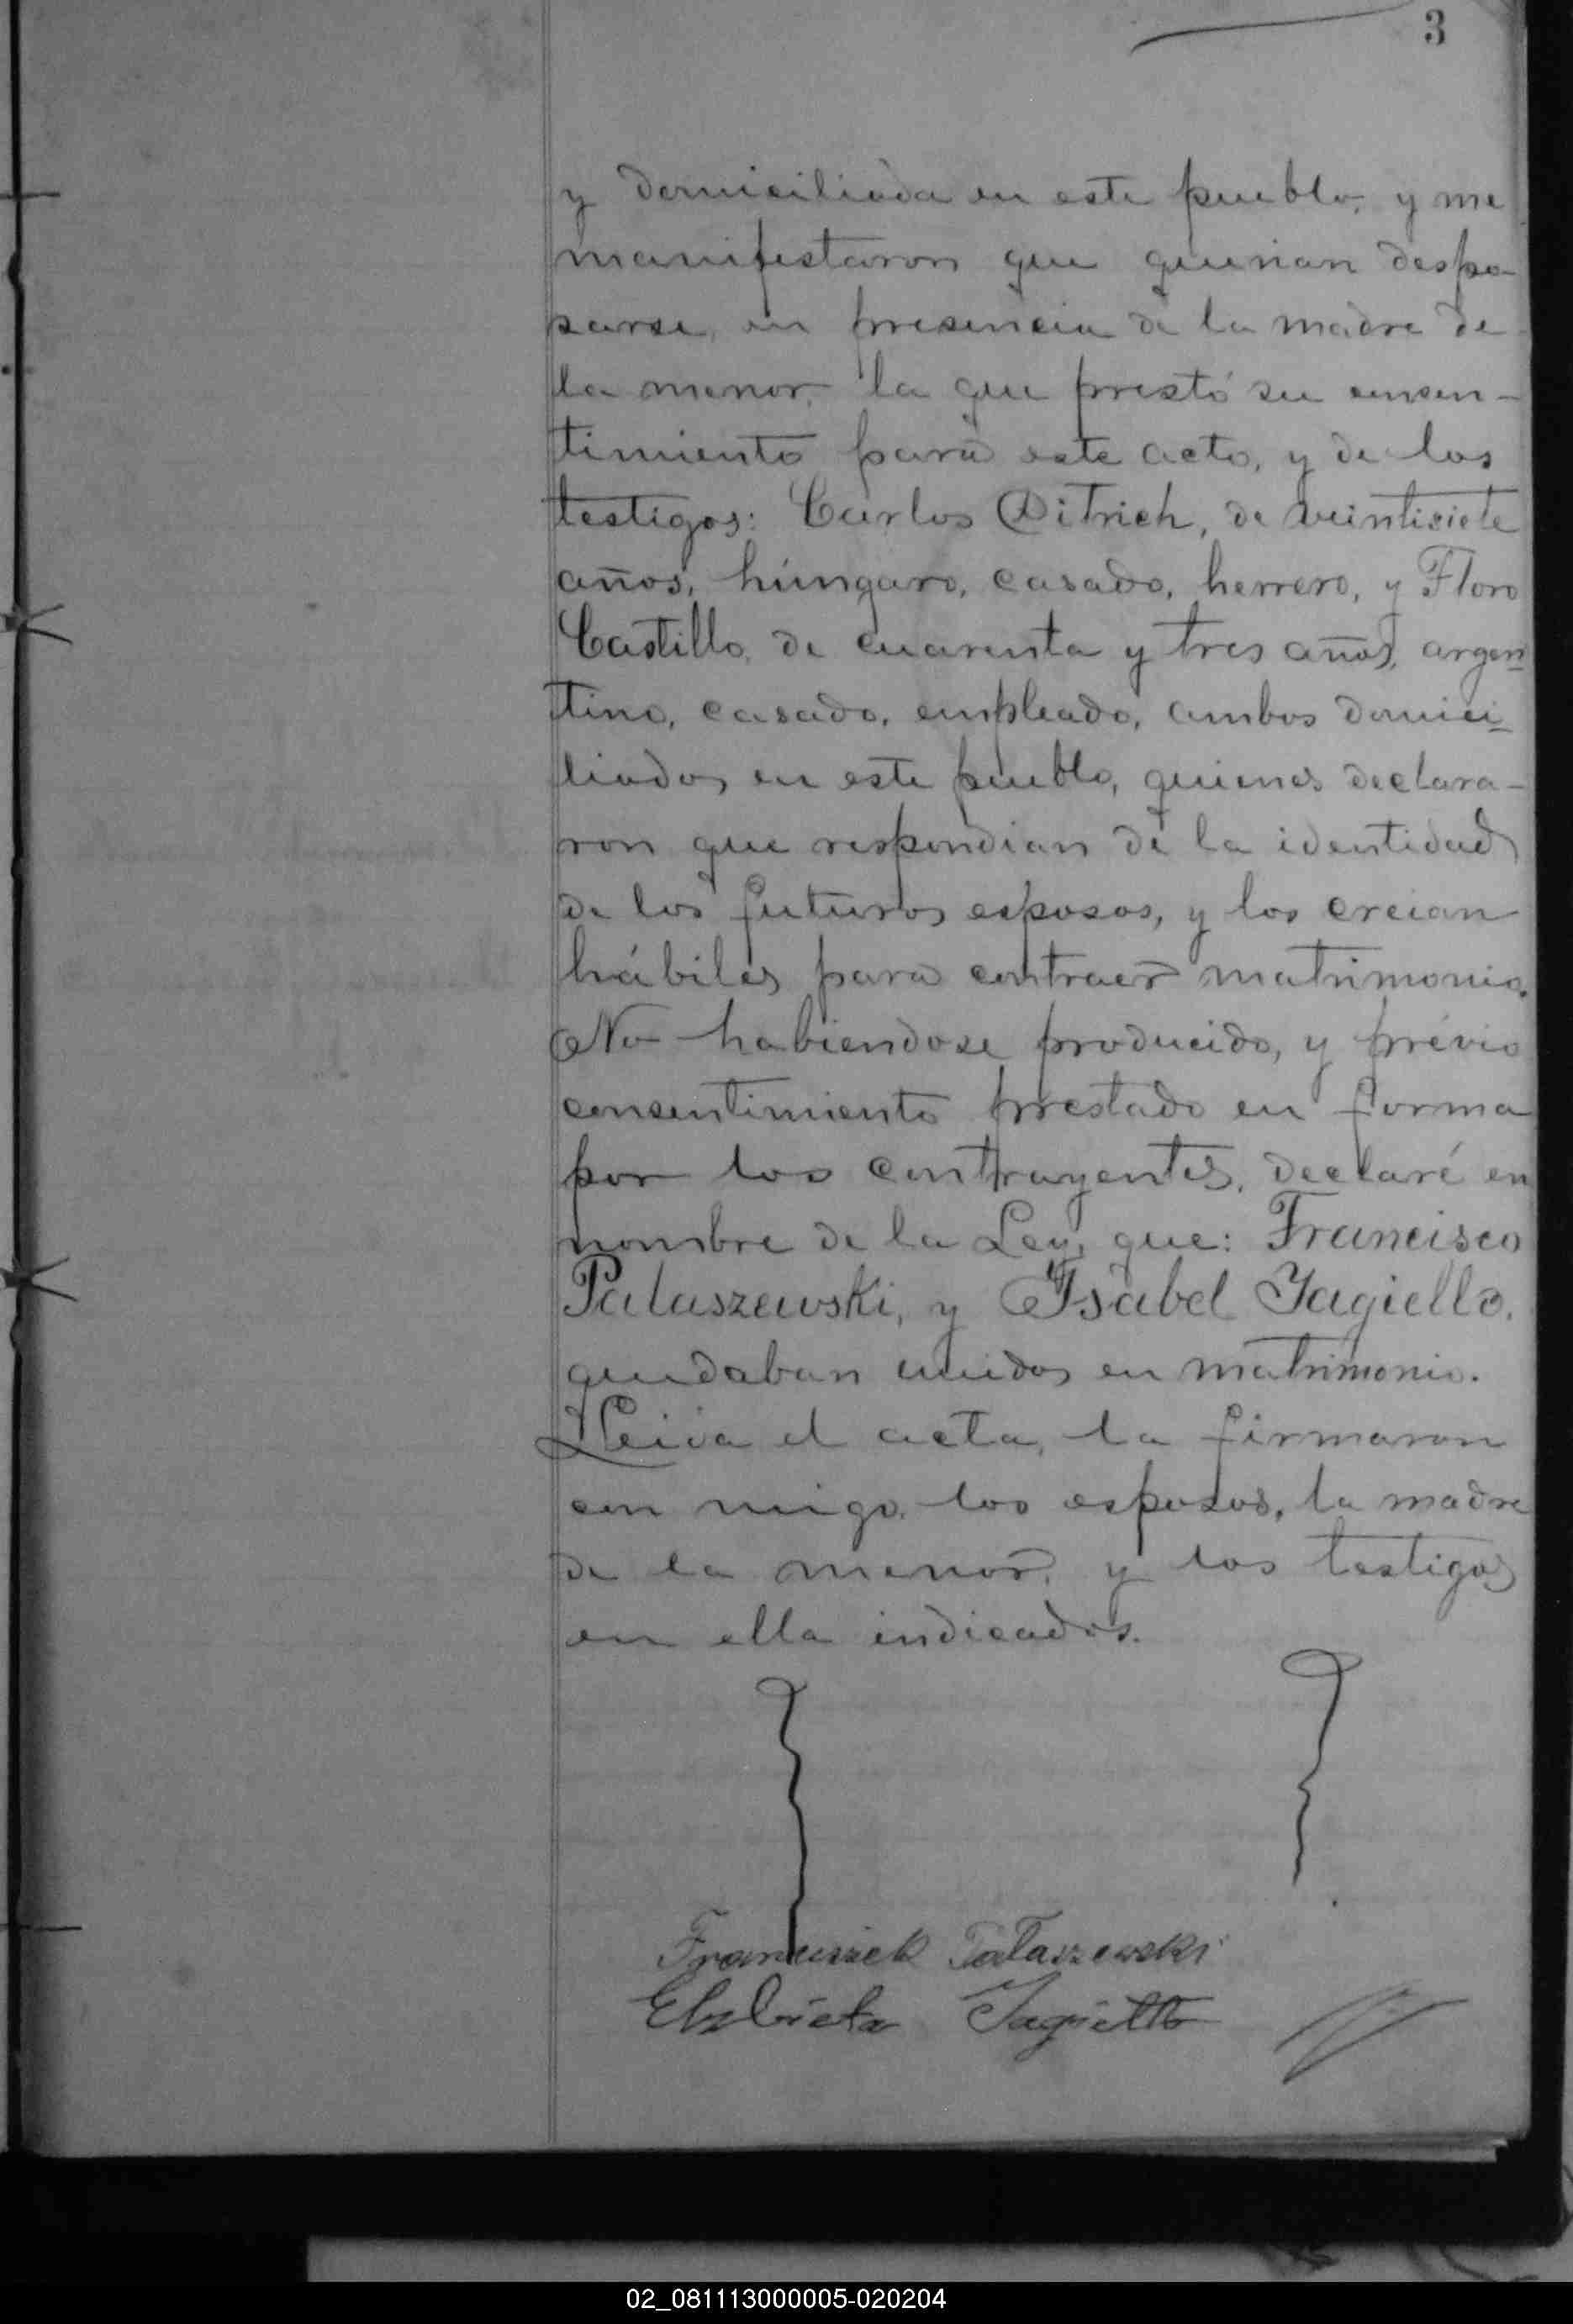 3
y domiciliada en este pueblo, y me
manifestaron que querian despo-
sarse, en presencia de la madre de
la menor, la que prestó su consen-
timiento para este acto, y de los
testigos: Carlos Ditrich, de veintisiete
años, húngaro, casado, herrero, y Floro
Castillo, de cuarenta y tres años, argen-
tino, casado, empleado, ambos domici-
liados en este pueblo, quienes declara-
ron que respondian de la identidad
de los futuros esposos, y los creian
hábiles para contraer matrimonio.
No habiendose producido, y prévio
consentimiento prestado en forma
por los contrayentes, declaré en
nombre de la Ley, que: Francisco
Palaszewski, y Isabel Jagiello,
quedaban unidos en matrimonio.
Leida el acta, la firmaron
con migo, los esposos, la madre
de la menor, y los testigos
en ella indicados.
Franciszek Pałaszewski
Elzbieta Jagiełło
02_081113000005-020204